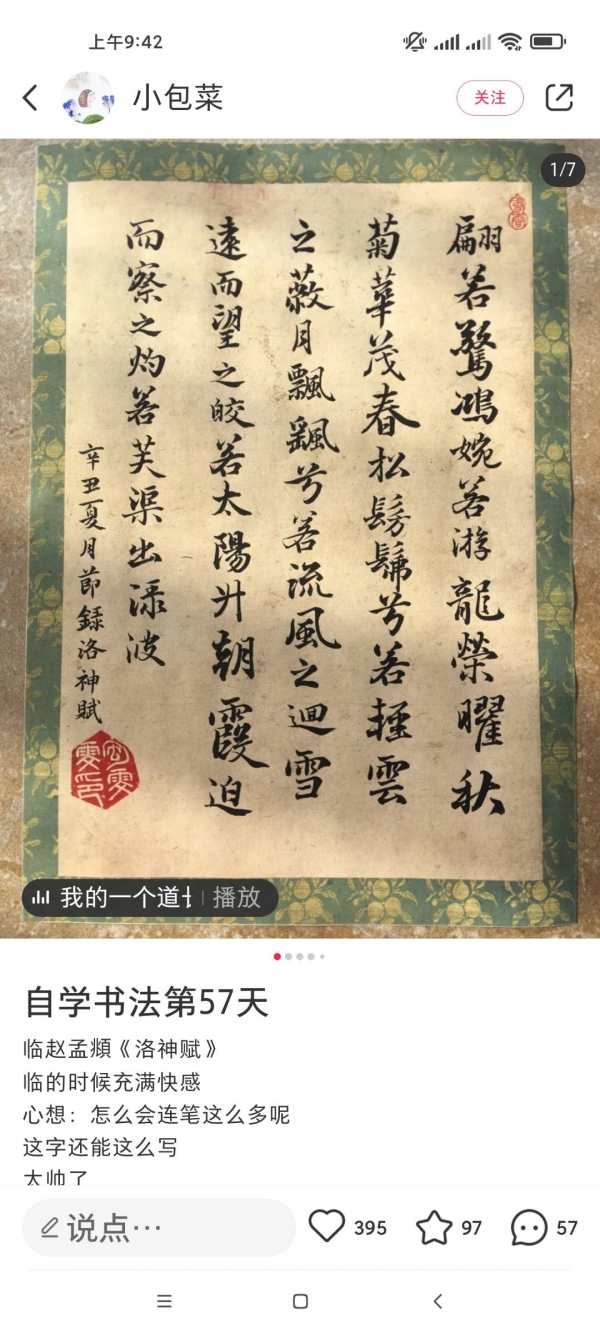 上午9:42
小包菜
关注
1/7
翩若驚鴻婉若游龍榮曜秋
菊華茂春松髣髴兮若輕雲
之蔽月飄飖兮若流風之迴雪
遠而望之皎若太陽升朝霞迫
而察之灼若芙渠出渌波
辛丑夏月節録洛神賦
我的一个道长
播放
自学书法第57天
临赵孟頫《洛神赋》
临的时候充满快感
心想：怎么会连笔这么多呢
这字还能这么写
太帅了
说点…
395
97
57